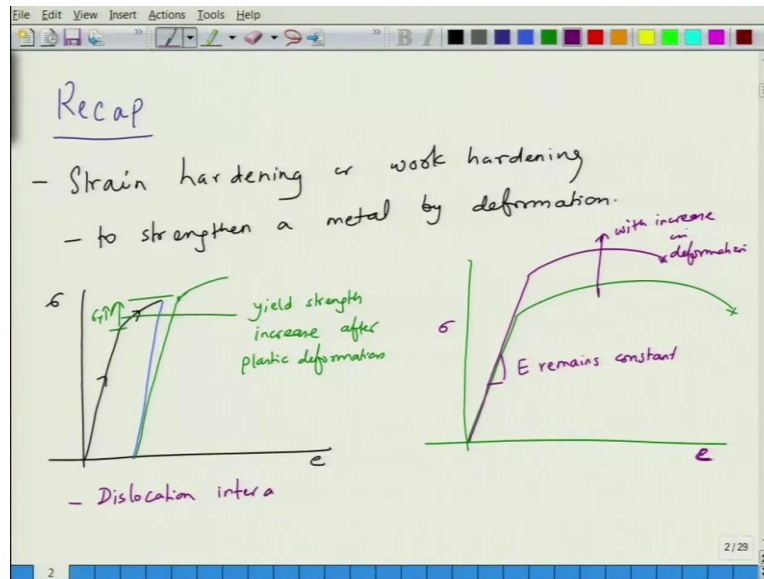 File Edit View Insert Actions Tools Help
B I
Recap
- Strain hardening or work hardening
- to strengthen a metal by deformation.
σ
yield strength
increase after
plastic deformation
e
with increase
in
deformation
σ
E remains constant
e
- Dislocation intera
2/29
2